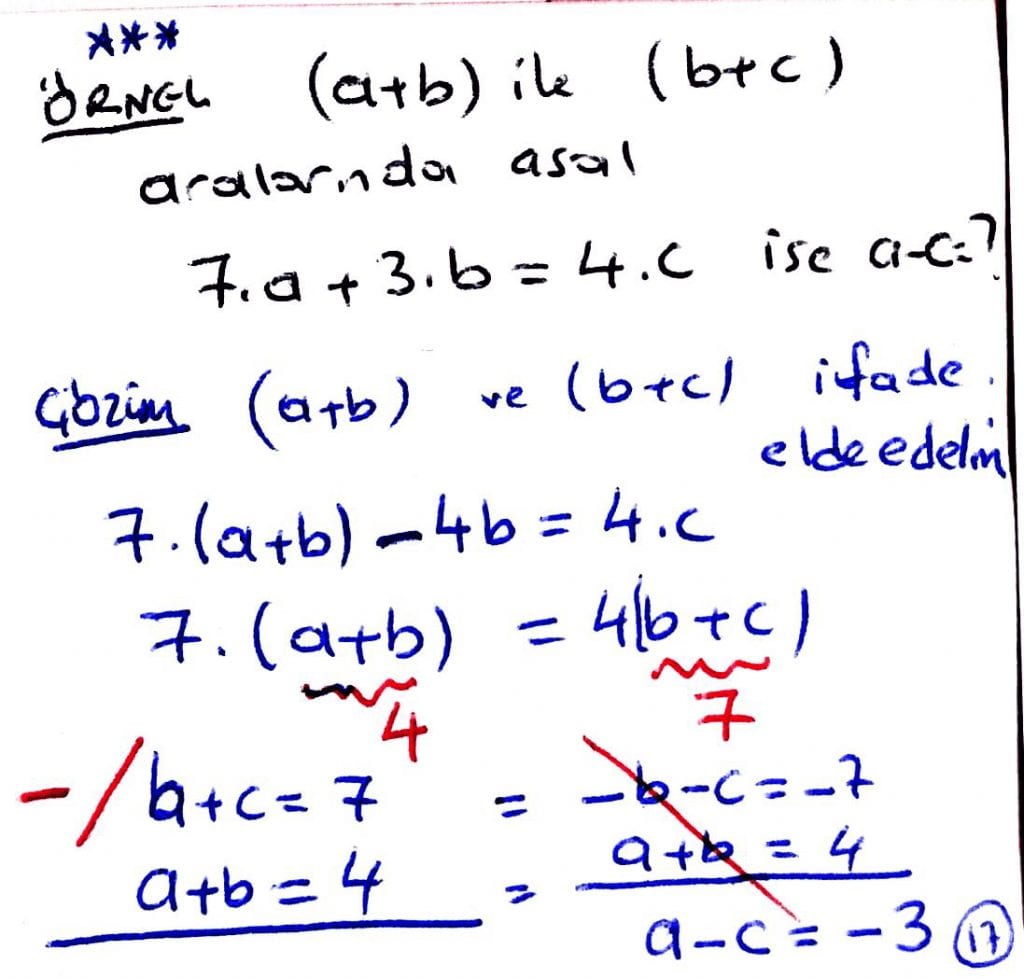 ***
ÖRNEK (a+b) ile (b+c)
aralarında asal
7.a + 3.b = 4.c ise a-c=?
Çözüm (a+b) ve (b+c) ifade
elde edelim
7.(a+b) - 4b = 4.c
7.(a+b) = 4(b+c)
4 7
-/ b+c = 7 = -b-c = -7
a+b = 4 = a+b = 4
a-c = -3 17